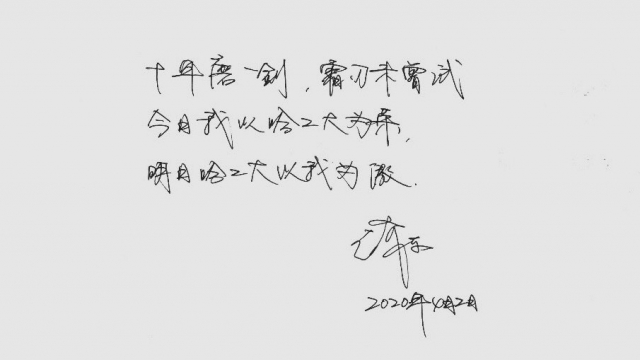 十年磨一剑，霜刃未曾试
今日我以哈工大为荣，
明日哈工大以我为傲.
2020年4月2日